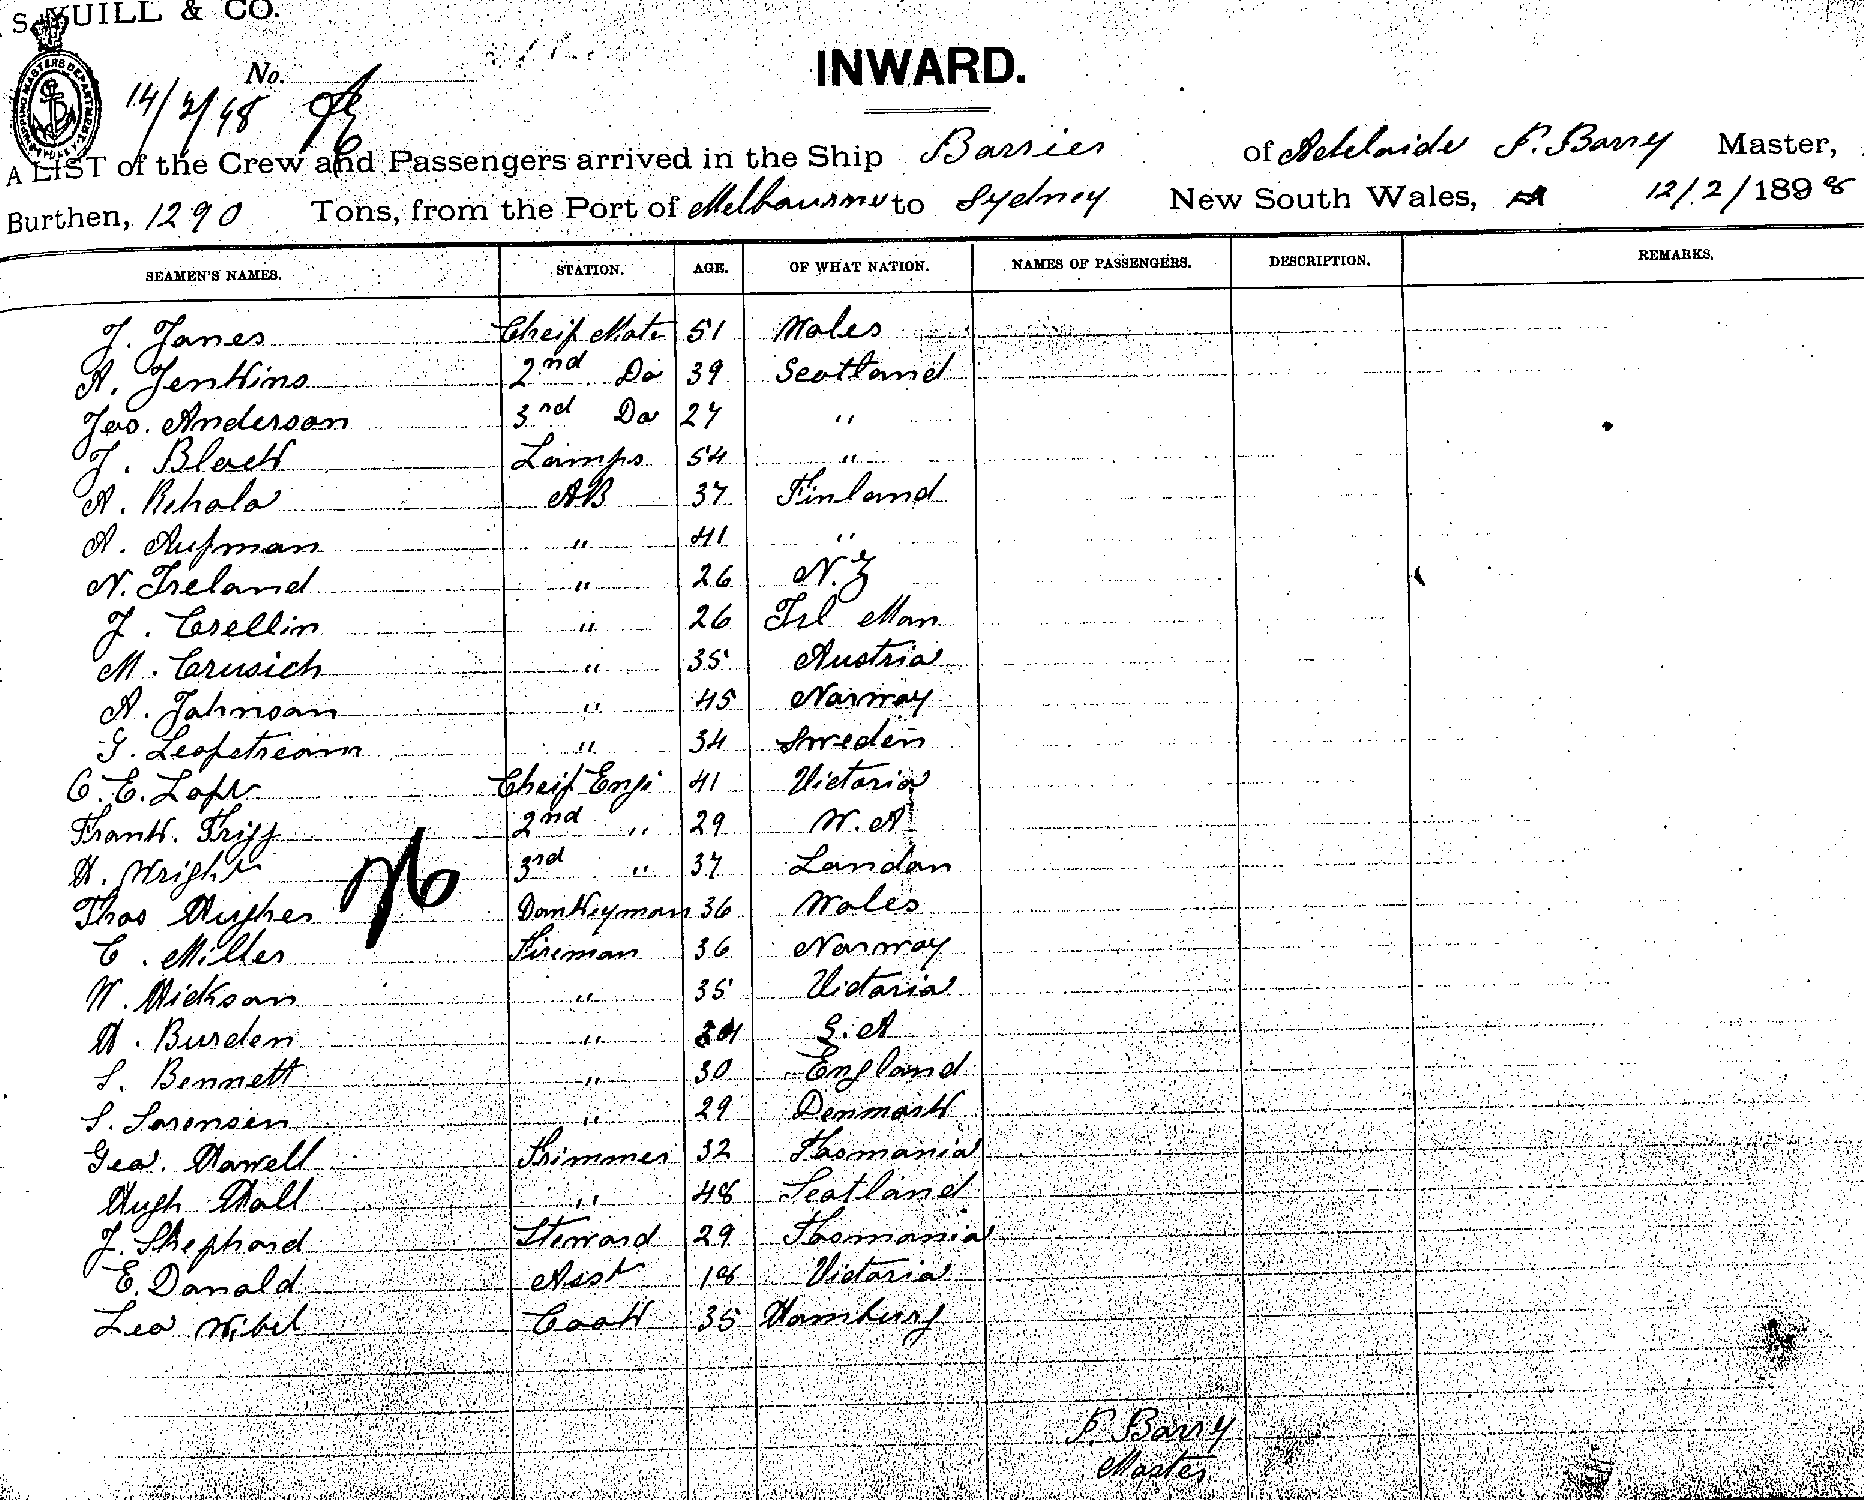 S. YUILL & CO.
No.
14/2/98
INWARD.
A LIST of the Crew and Passengers arrived in the Ship Barrier of Adelaide P. Barry Master,
Burthen, 1290 Tons, from the Port of Melbourne to Sydney New South Wales, 12/2/1898
SEAMEN'S NAMES. STATION. AGE. OF WHAT NATION. NAMES OF PASSENGERS. DESCRIPTION. REMARKS.
J. Jones Cheif Mate 51 Wales
A. Jenkins 2nd Do 39 Scotland
Jas. Anderson 3rd Do 27 "
J. Black Lamps 54 "
A. Rehala AB 37 Finland
A. Aufman " 41 "
N. Ireland " 26 N.Z
J. Crellin " 26 Isl Man
M. Crusich " 35 Austria
A. Johnson " 45 Norway
G. Leofstream " 34 Sweden
C. E. Loft Cheif Engi 41 Victoria
Frank. Trigg 2nd " 29 W. A
H. Wright 3rd " 37 London
Thos Hughes Donkeyman 36 Wales
C. Miller Fireman 36 Norway
W. Hickson " 35 Victoria
H. Burden " S. A
S. Bennett " 30 England
S. Sorensen " 29 Denmark
Geo. Howell Trimmer 32 Tasmania
Hugh Hall " 48 Scotland
J. Shephard Steward 29 Tasmania
E. Donald Asst 18 Victoria
Leo Wibel Cook 35 Hamburg
P. Barry
Master